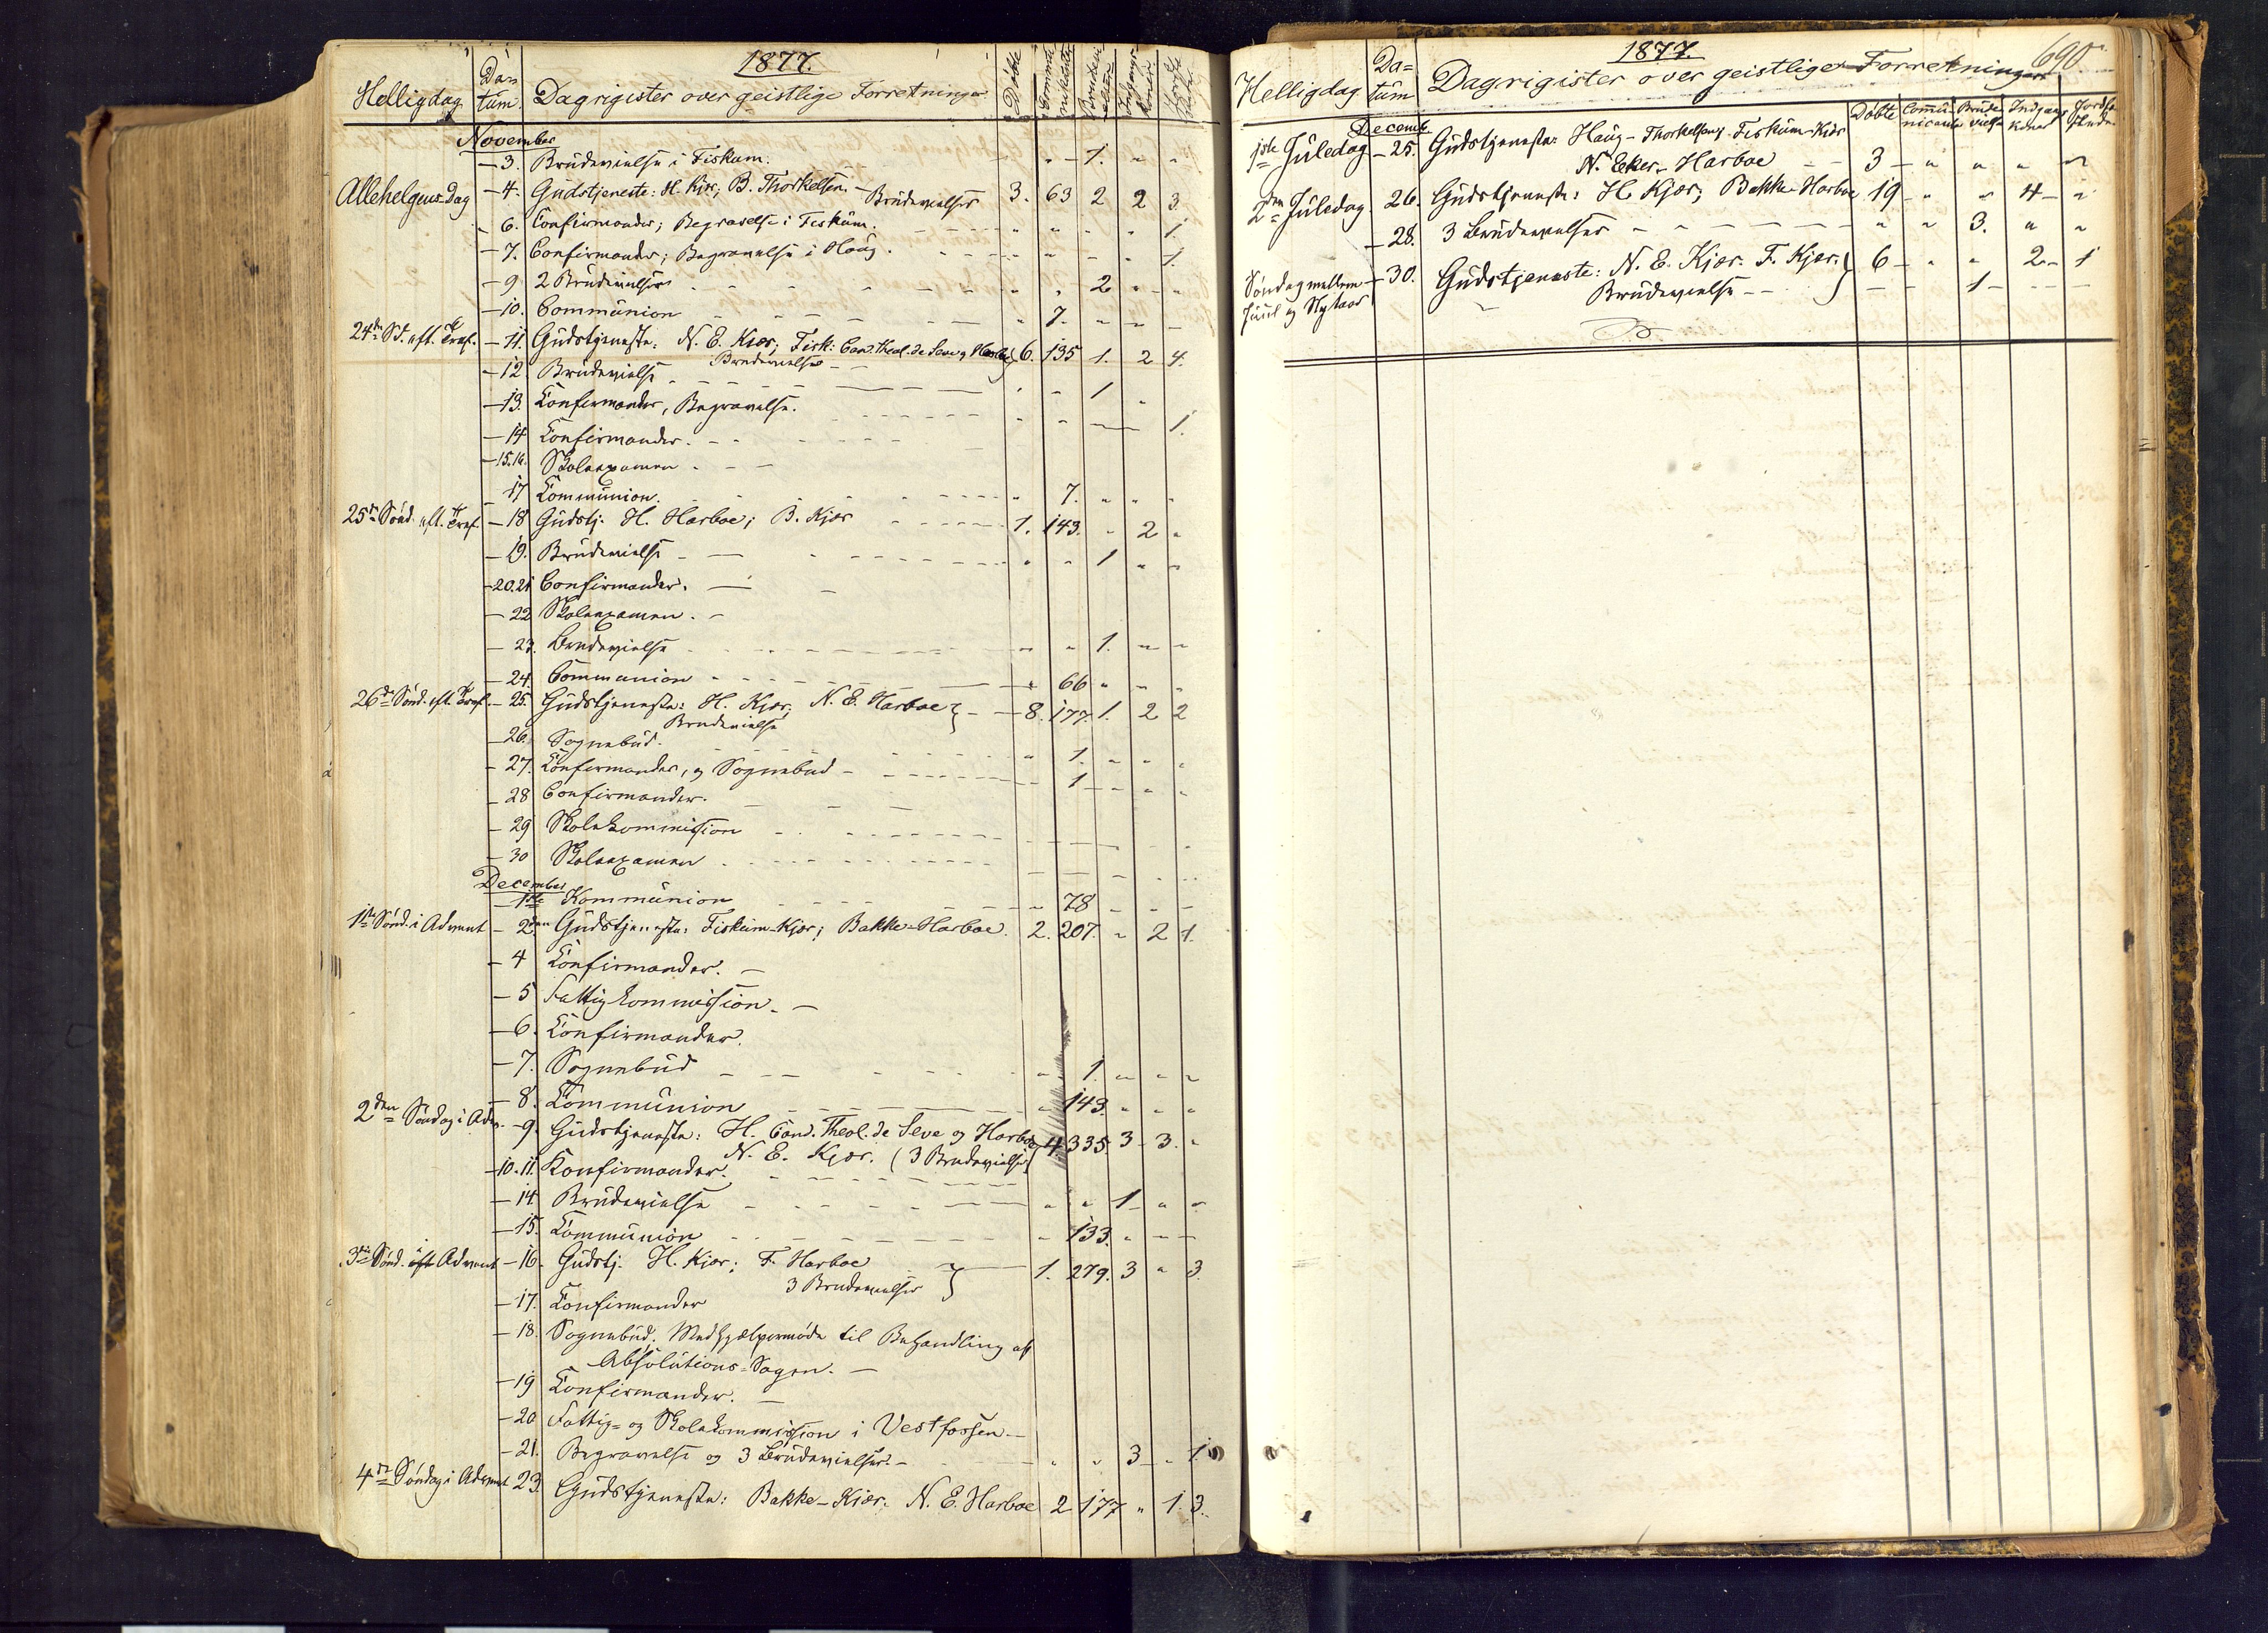 1877.
Helligdag Datum. Dagrigister over geistlige Forretninger Døbte Communikanter Brudevielser Indgangskoner Jordfæstede
November
– 3. Brudevielse i Fiskum. " – 1. " "
Allehelgens Dag – 4. Gudstjeneste: H. Kjær; B. Thorkelsen. – Brudevielser 3. 63 2 2 3.
– 6. Confirmander; Begravelse i Fiskum. " " " " 1.
– 7. Confirmander; Begravelse i Houg. " " " " 1.
– 9 2 Brudevielser " " 2 " "
– 10. Communion " 7. " " –
24de Sd. eft. Tref. – 11. Gudstjeneste: N. E. Kjær; Fisk: Cand. Theol. de Seve og Harboe 6. 135 1. 2 4.
Brudevielse – –
– 12. Brudevielse " " 1 "
– 13. Confirmander, Begravelse. " " – – 1.
– 14 Confirmander. – –
– 15.16. Skoleexamen – –
– 17 Communion. " 7. " " "
25de Sønd. eft. Tref. – 18 Gudstj. H. Harboe; B. Kjær 1. 143. " 2 "
– 19. Brudevielse – " " 1 " "
– 20.21 Confirmander. –
– 22 Skoleexamen. –
– 23. Brudevielse " " 1. " "
– 24. Communion " 66 " " "
26de Sønd. eft. Tref. – 25. Gudstjeneste: H. Kjær; N. E. Harboe } – 8. 177. 1. 2 2
Brudevielse
– 26. Sognebud. " 1. " " "
– 27. Confirmander, og Sognebud – 1 – " "
– 28 Confirmander.
– 29 Skolekommission
– 30 Skoleexamen
December
– 1ste Kommunion " 78 – – –
1ste Sønd. i Advent – 2den Gudstjeneste: Fiskum – Kjær; Bakke – Harboe. 2. 207. " 2 1.
– 4 Confirmander. –
– 5 Fattigkommission. –
– 6. Confirmander.
– 7. Sognebud " 1. " " "
– 8. Communion " 143. " " "
2den Søndag i Adv. – 9. Gudstjeneste: H. Cand. Theol. de Seve og Harboe 4 335. 3 – 3. "
N. E. Kjær. (3 Brudevielser)
– 10.11. Konfirmander.
– 14. Brudevielse " " 1 – " "
– 15. Communion " 133. " – –
3die Sønd. eft Advent – 16. Gudstj. H. Kjær; F. Harboe } 1. 279. 3 " 3
3 Brudevielser
– 17. Confirmander
– 18. Sognebud. Medhjælpermøde til Behandling af
Absolutions-Sagen. –
– 19 Confirmander. –
– 20 Fattig- og Skolekommission i Vestfossen –
– 21. Begravelse og 3 Brudevielser. – " " 3 – " 1.
4de Søndag i Advent 23. Gudstjeneste: Bakke – Kjær. N. E. Harboe 2 177 " 1. 3.
1877. 690
Helligdag Datum Dagrigister over geistlige Forretninger
Døbte Communicanter Brudevielse Indgangskoner Jordfæstede
Decemb.
1ste Juledag – 25. Gudstjeneste: Haug – Thorkelsen; Fiskum – Kjær
N. Eker – Harboe – – 3 – " " " "
2den Juledag 26. Gudstjeneste: H Kjær; Bakke – Harboe 19 – " " 4 – "
– 28. 3 Brudevielser " " 3. " "
Søndag mellem Juul og Nytaar – 30. Gudstjeneste: N. E. Kjær. F. Kjær. } 6 – " " 2 – 1
Brudevielse – – – – 1 – – –